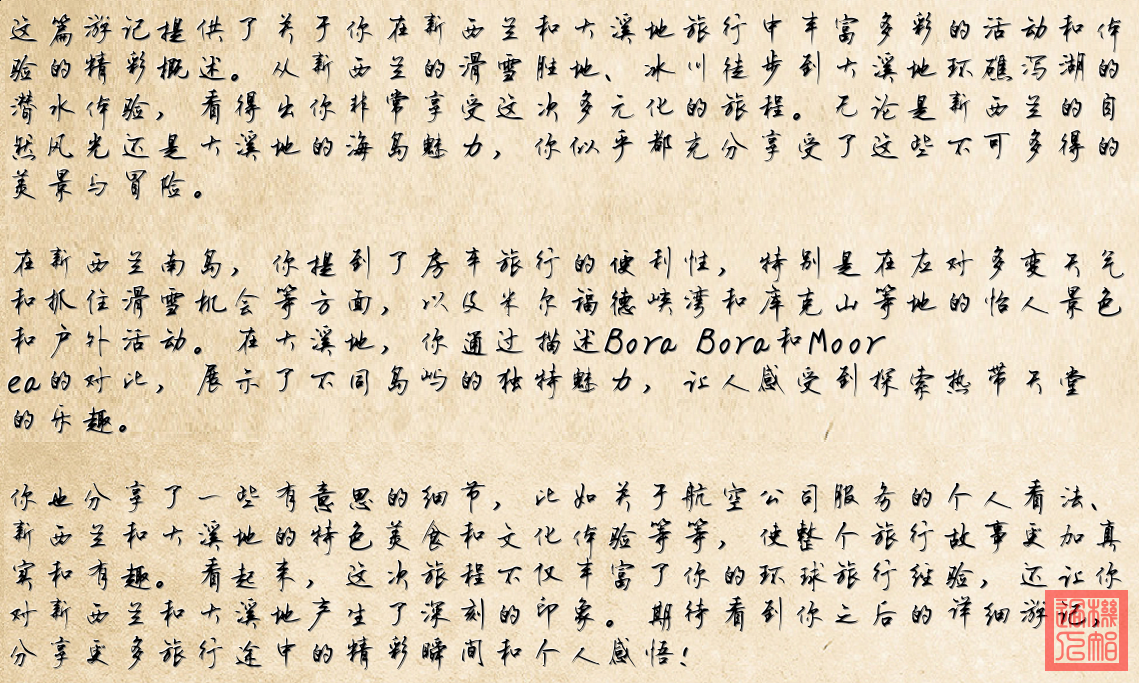 这篇游记提供了关于你在新西兰和大溪地旅行中丰富多彩的活动和体
验的精彩概述。从新西兰的滑雪胜地、冰川徒步到大溪地环礁泻湖的
潜水体验，看得出你非常享受这次多元化的旅程。无论是新西兰的自
然风光还是大溪地的海岛魅力，你似乎都充分享受了这些不可多得的
美景与冒险。
在新西兰南岛，你提到了房车旅行的便利性，特别是在应对多变天气
和抓住滑雪机会等方面，以及米尔福德峡湾和库克山等地的怡人景色
和户外活动。在大溪地，你通过描述Bora Bora和Moor
ea的对比，展示了不同岛屿的独特魅力，让人感受到探索热带天堂
的乐趣。
你也分享了一些有意思的细节，比如关于航空公司服务的个人看法、
新西兰和大溪地的特色美食和文化体验等等，使整个旅行故事更加真
实和有趣。看起来，这次旅程不仅丰富了你的环球旅行经验，还让你
对新西兰和大溪地产生了深刻的印象。期待看到你之后的详细游记，
分享更多旅行途中的精彩瞬间和个人感悟！